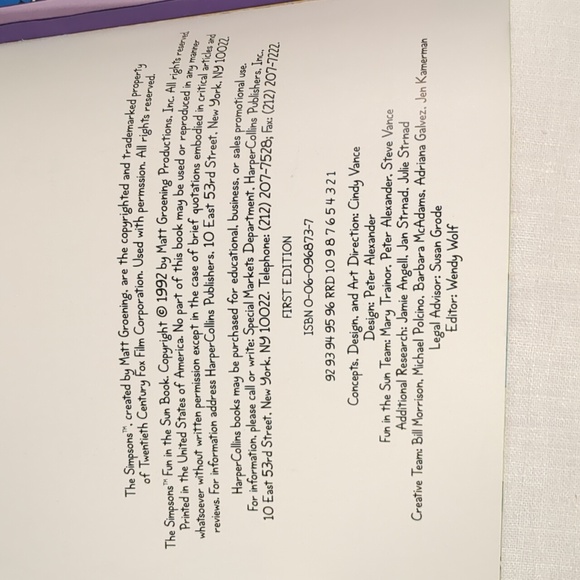 The Simpsons™, created by Matt Groening, are the copyrighted and trademarked property
of Twentieth Century Fox Film Corporation. Used with permssion. All rights reserved.
The Simpsons™ Fun in the Sun Book. Copyright © 1992 by Matt Groening Productions, Inc. All rights reserved.
Printed in the United States of America. No part of this book may be used or reproduced in any manner
whatsoever without written permission except in the case of brief quotations embodied in critical articles and
reviews. For information address HarperCollins Publishers, 10 East 53rd Street, New York, NY 10022.
HarperCollins books may be purchased for educational, business, or sales promotional use.
For information, please call or write: Special Markets Department, HarperCollins Publishers, Inc.,
10 East 53rd Street, New York, NY 10022. Telephone: (212) 207-7528; Fax: (212) 207-7222.
FIRST EDITION
ISBN 0-06-096873-7
92 93 94 95 96 RRD 10 9 8 7 6 5 4 3 2 1
Concepts, Design, and Art Direction: Cindy Vance
Design: Peter Alexander
Fun in the Sun Team: Mary Trainor, Peter Alexander, Steve Vance
Additional Research: Jamie Angell, Jan Strnad, Julie Strnad
Creative Team: Bill Morrison, Michael Polcino, Barbara McAdams, Adriana Galvez, Jen Kamerman
Legal Advisor: Susan Grode
Editor: Wendy Wolf